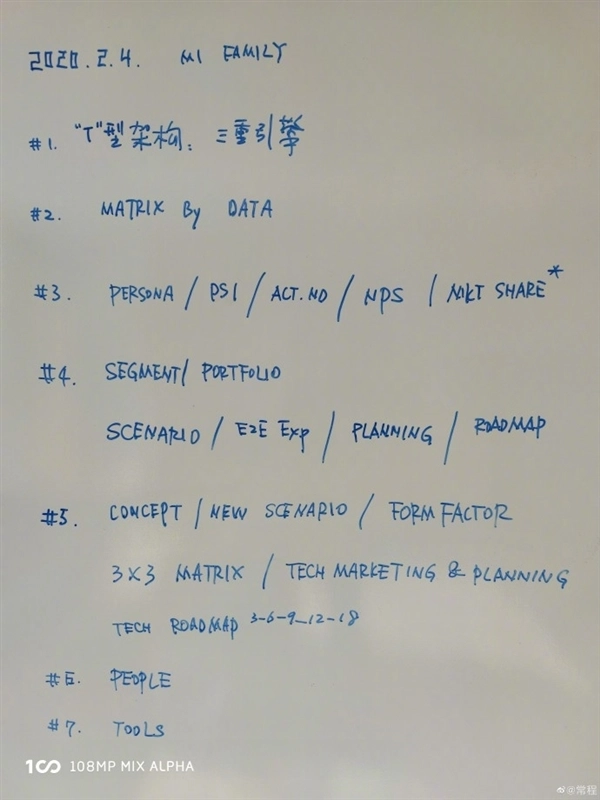 2020.2.4. MI FAMILY
#1. "T"型架构：三重引擎
#2. MATRIX By DATA
#3. PERSONA / PSI / ACT.NO / NPS / MKT SHARE*
#4. SEGMENT/ PORTFOLIO
SCENARIO / E2E Exp / PLANNING / ROADMAP
#5. CONCEPT / NEW SCENARIO / FORM FACTOR
3×3 MATRIX / TECH MARKETING & PLANNING
TECH ROADMAP 3-6-9_12-18
#6. PEOPLE
#7. TOOLS
108MP MIX ALPHA
@常程